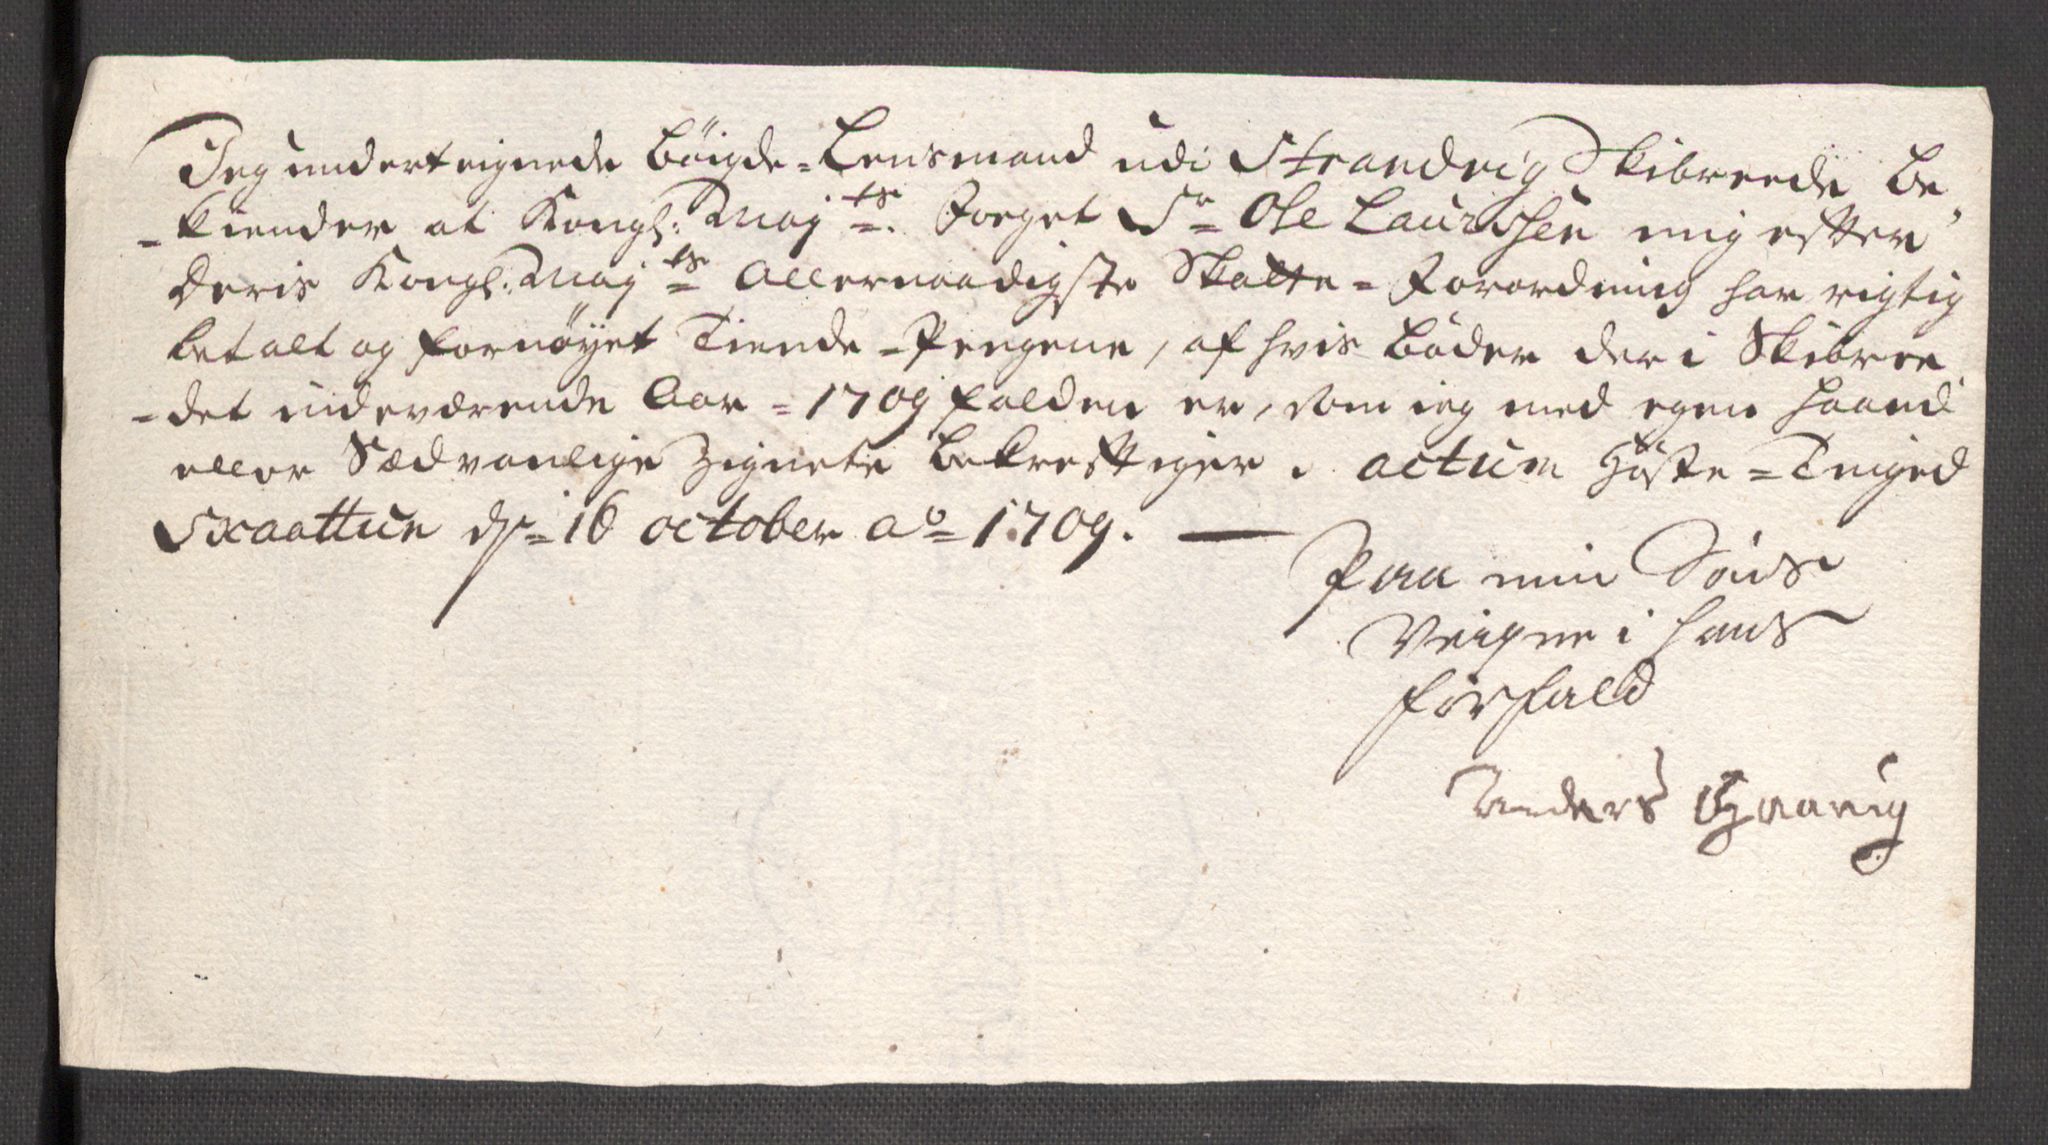 Jeg underteignede Böigde-Lensmand udi Strandvig Skibreede Be,
-kiender at Kongl: Maj.ts Foeget Sr Ole Laurssen mig efter
deris Kongl: Maj.ts Allernaadigste Skatte-Forordning har rigtig
betalt og fornöyet Tiende-Pengene, af hvis Böder der i Skibree
-det indeværende Aar-1709 falden er, som ieg med egen haand
eller Sædvanlige Zignete bekrefftiger. actum Höste-Tinged
Skaattun ds 16 october ao 1709.
Paa min Söns
Veigne i hans
forfald
Anders Gaarvig